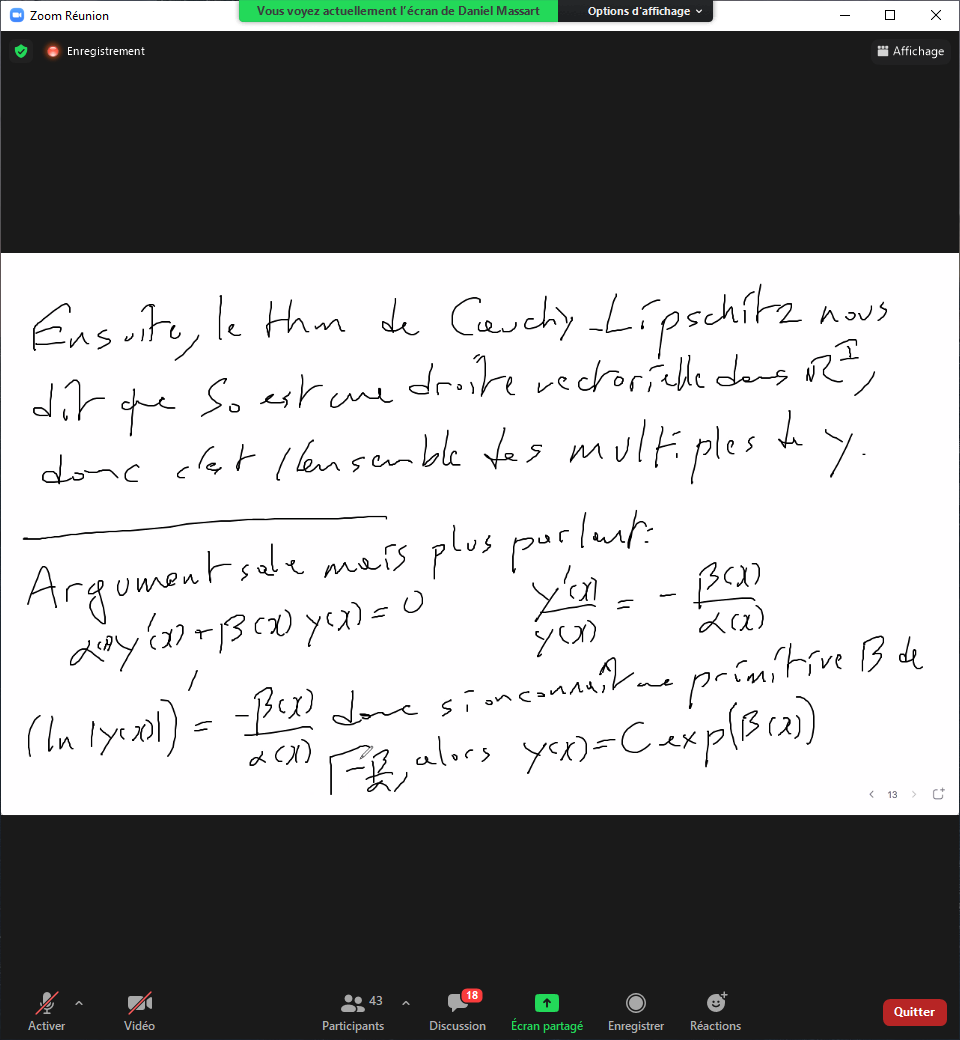 Zoom Réunion
Vous voyez actuellement l'écran de Daniel Massart
Options d'affichage
Enregistrement
Affichage
Ensuite, le thm de Cauchy-Lipschitz nous
dit que S₀ est une droite vectorielle dans ℝ^I,
donc c'est l'ensemble des multiples de y.
Argument sale mais plus parlant:
α(x)y'(x)+β(x)y(x)=0 y'(x)/y(x) = - β(x)/α(x)
(ln|y(x)|)' = -β(x)/α(x) donc si on connaît une primitive B de
-β/α, alors y(x)=C exp(B(x))
13
Activer
Vidéo
43
Participants
18
Discussion
Écran partagé
Enregistrer
Réactions
Quitter